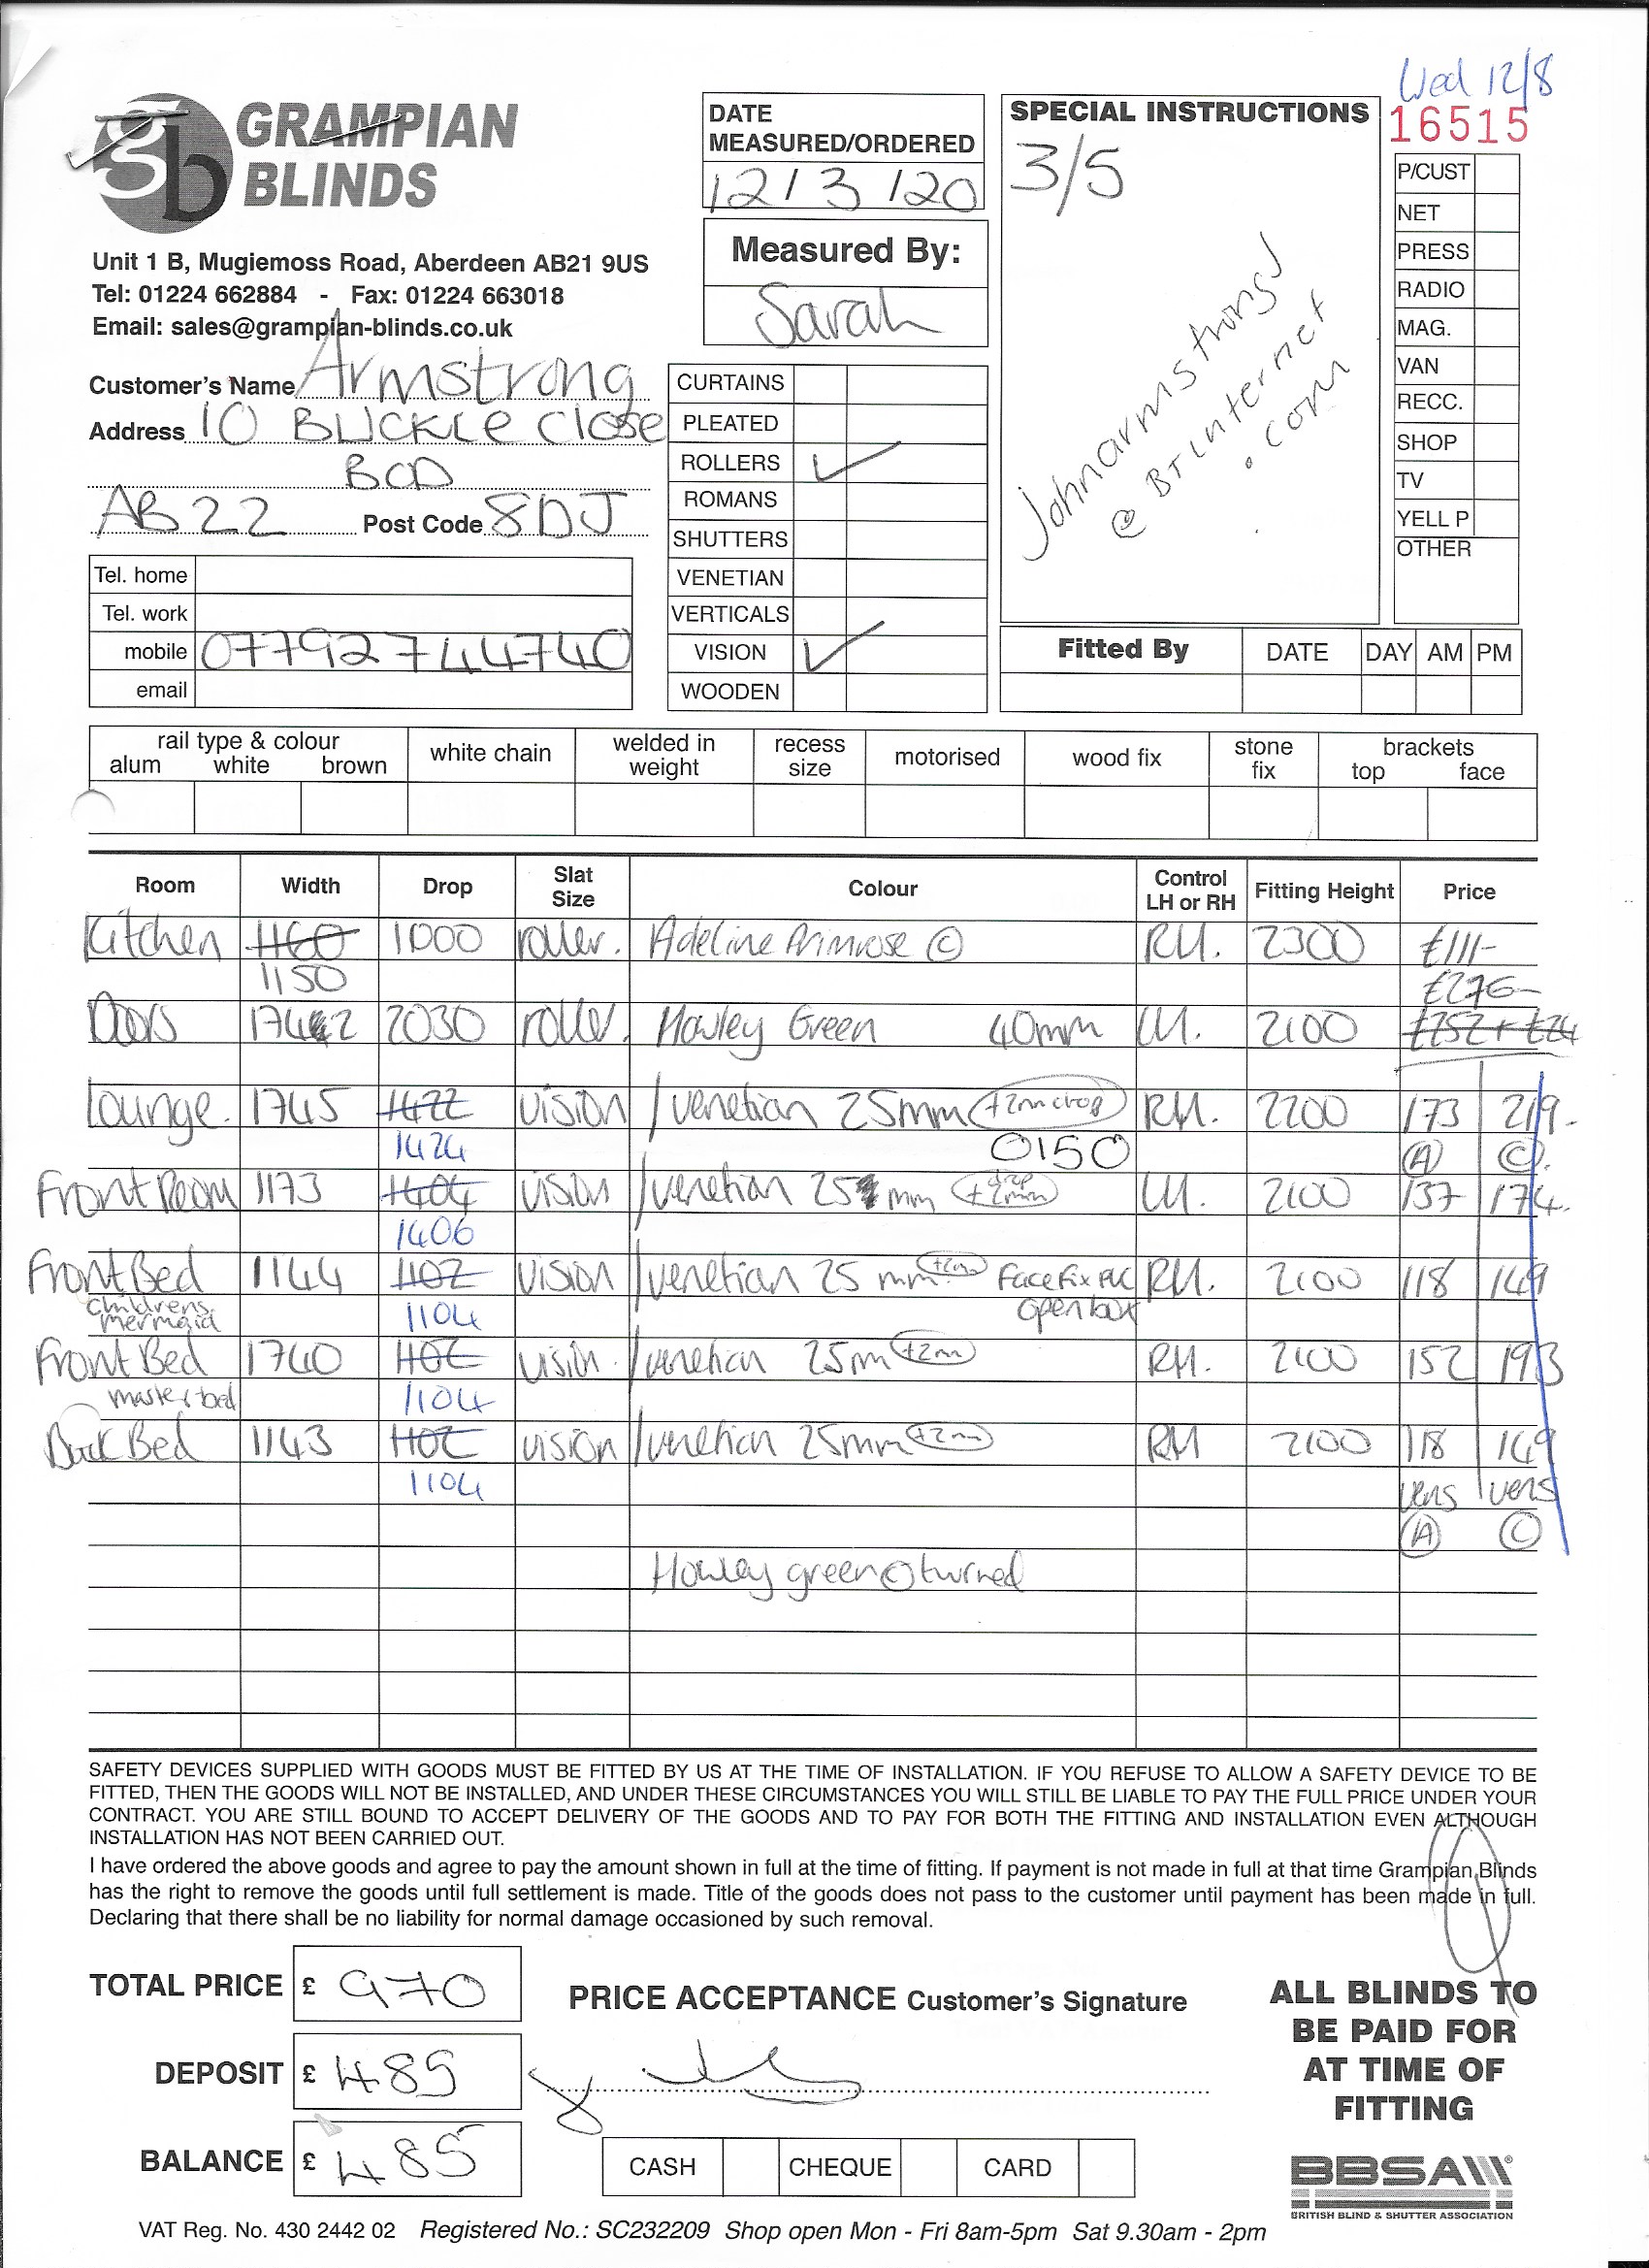 Wed 12/8
16515
gb GRAMPIAN BLINDS
Unit 1 B, Mugiemoss Road, Aberdeen AB21 9US
Tel: 01224 662884 - Fax: 01224 663018
Email: sales@grampian-blinds.co.uk
DATE MEASURED/ORDERED
12/3/20
Measured By:
Sarah
SPECIAL INSTRUCTIONS
3/5
Johnarmstrong1
@ BTinternet
.com
P/CUST
NET
PRESS
RADIO
MAG.
VAN
RECC.
SHOP
TV
YELL P
OTHER
Customer's Name Armstrong
Address 10 Buckle Close
BOD
AB22 Post Code 8DJ
Tel. home
Tel. work
mobile 07792744740
email
CURTAINS
PLEATED
ROLLERS ✓
ROMANS
SHUTTERS
VENETIAN
VERTICALS
VISION ✓
WOODEN
Fitted By DATE DAY AM PM
rail type & colour white chain welded in weight recess size motorised wood fix stone fix brackets
alum white brown top face
Room Width Drop Slat Size Colour Control LH or RH Fitting Height Price
Kitchen 1160 1000 roller. Adeline Primrose © RH. 2300 £111-
1150 £276-
Doors 1742 2030 roller. Howley Green 40mm LH. 2100 £252 + £24
Lounge. 1745 1422 vision /venetian 25mm +2mm drop RH. 2200 173 219.
1424 0150 (A) (C).
Front Room 1173 1404 vision /venetian 25mm +2mm drop LH. 2100 137 174.
1406
Front Bed 1144 1102 vision /venetian 25 mm +2mm Face Fix PVC RH. 2100 118 149
childrens mermaid 1104 open box
Front Bed 1740 1102 vision /venetian 25m +2mm RH. 2100 152 193
master bed 1104
Back Bed 1143 1102 vision /venetian 25mm +2mm RH 2100 118 149
1104 vens vens
(A) (C)
Howley green © turned
SAFETY DEVICES SUPPLIED WITH GOODS MUST BE FITTED BY US AT THE TIME OF INSTALLATION. IF YOU REFUSE TO ALLOW A SAFETY DEVICE TO BE
FITTED, THEN THE GOODS WILL NOT BE INSTALLED, AND UNDER THESE CIRCUMSTANCES YOU WILL STILL BE LIABLE TO PAY THE FULL PRICE UNDER YOUR
CONTRACT. YOU ARE STILL BOUND TO ACCEPT DELIVERY OF THE GOODS AND TO PAY FOR BOTH THE FITTING AND INSTALLATION EVEN ALTHOUGH
INSTALLATION HAS NOT BEEN CARRIED OUT.
I have ordered the above goods and agree to pay the amount shown in full at the time of fitting. If payment is not made in full at that time Grampian Blinds
has the right to remove the goods until full settlement is made. Title of the goods does not pass to the customer until payment has been made in full.
Declaring that there shall be no liability for normal damage occasioned by such removal.
TOTAL PRICE £ 970
DEPOSIT £ 485
BALANCE £ 485
PRICE ACCEPTANCE Customer's Signature
CASH CHEQUE CARD
ALL BLINDS TO
BE PAID FOR
AT TIME OF
FITTING
BBSA
BRITISH BLIND & SHUTTER ASSOCIATION
VAT Reg. No. 430 2442 02 Registered No.: SC232209 Shop open Mon - Fri 8am-5pm Sat 9.30am - 2pm